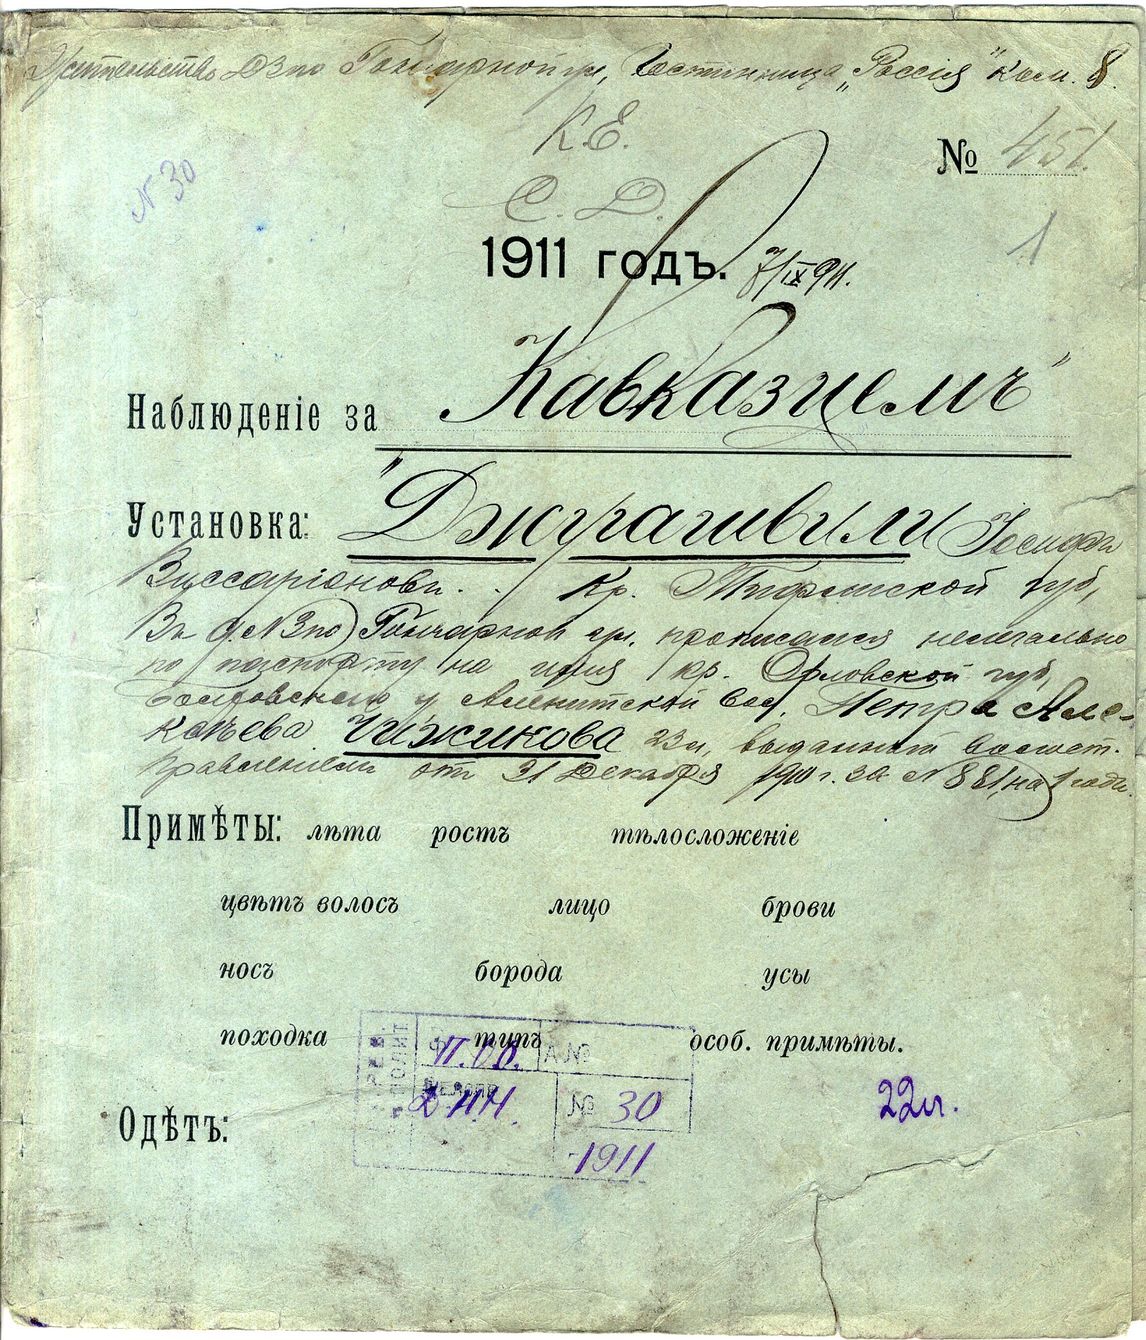 Жительство Д3 по Гончарной ул, Гостинница „Россія" Ком. 8.
К.Е.
№ 451.
№ 30
С. Д.
1
1911 годъ. 7/IX 911.
Наблюденіе за „Кавказцемъ"
Установка: „Джугашвили Іосифъ
Виссаріоновъ.. Кр. Тифлисской губ,
Въ д. №3 по Гончарной ул. прописался нелегально
по паспорту на имя кр. Орловской губ,
у. вол, Петра Але-
Чижикова 23 л, выданный волост.
Правленіемъ отъ 31 Декабря 1910 г. за № 881, на 1 годъ.
Примѣты: лѣта ростъ тѣлосложеніе
цвѣтъ волосъ лицо брови
носъ борода усы
походка типъ особ. примѣты.
А №
№ 30
1911
22 л.
Одѣтъ: